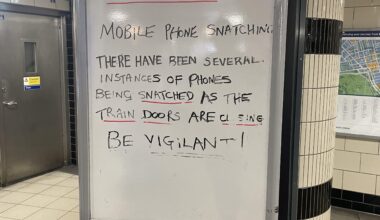 MOBILE PHONE SNATCHING.
THERE HAVE BEEN SEVERAL
INSTANCES OF PHONES
BEING SNATCHED AS THE
TRAIN DOORS ARE CL SING
BE VIGILANT!